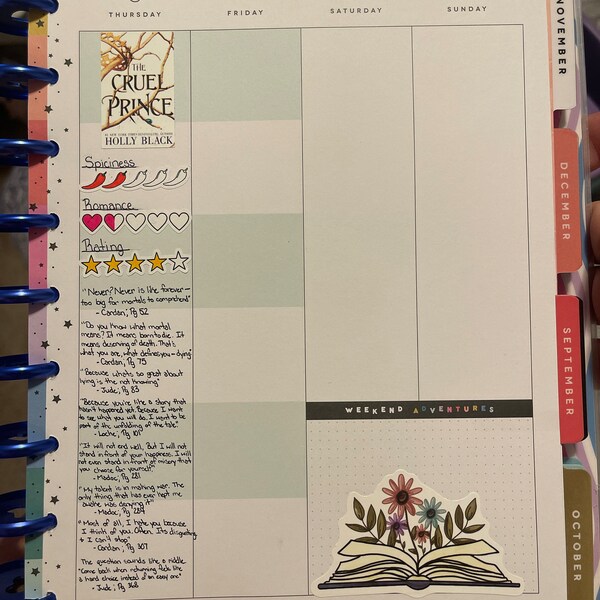 THURSDAY
FRIDAY
SATURDAY
SUNDAY
THE
CRUEL
PRINCE
HOLLY BLACK
Spiciness
Romance
Rating
"Never? Never is like forever—
too big for mortals to comprehend"
- Cardan, Pg 152
"Do you know what mortal
means? It means born to die. It
means deserving of death. That's
what you are, what defines you - dying"
- Cardan, Pg 75
"Because whats so great about
lying is the not knowing"
- Jude, Pg 83
"Because you're like a story that
hasn't happened yet. Because I want
to see what you will do. I want to be
part of the unfolding of the tale"
- Locke, Pg 101
"It will not end well, But I will not
stand in front of your happiness. I will
not even stand in front of misery that
you choose for yourself."
- Madoc, Pg 281
"My talent is in making war. The
only thing that has ever kept me
awake was denying it"
- Madoc, Pg 289
"Most of all, I hate you because
I think of you. Often. Its disgusting
& I can't stop"
- Cardan, Pg 307
The question sounds like a riddle.
"Come back when returning feels like
a hard choice instead of an easy one"
- Jude, Pg 362
WEEKEND ADVENTURES
NOVEMBER
DECEMBER
SEPTEMBER
OCTOBER